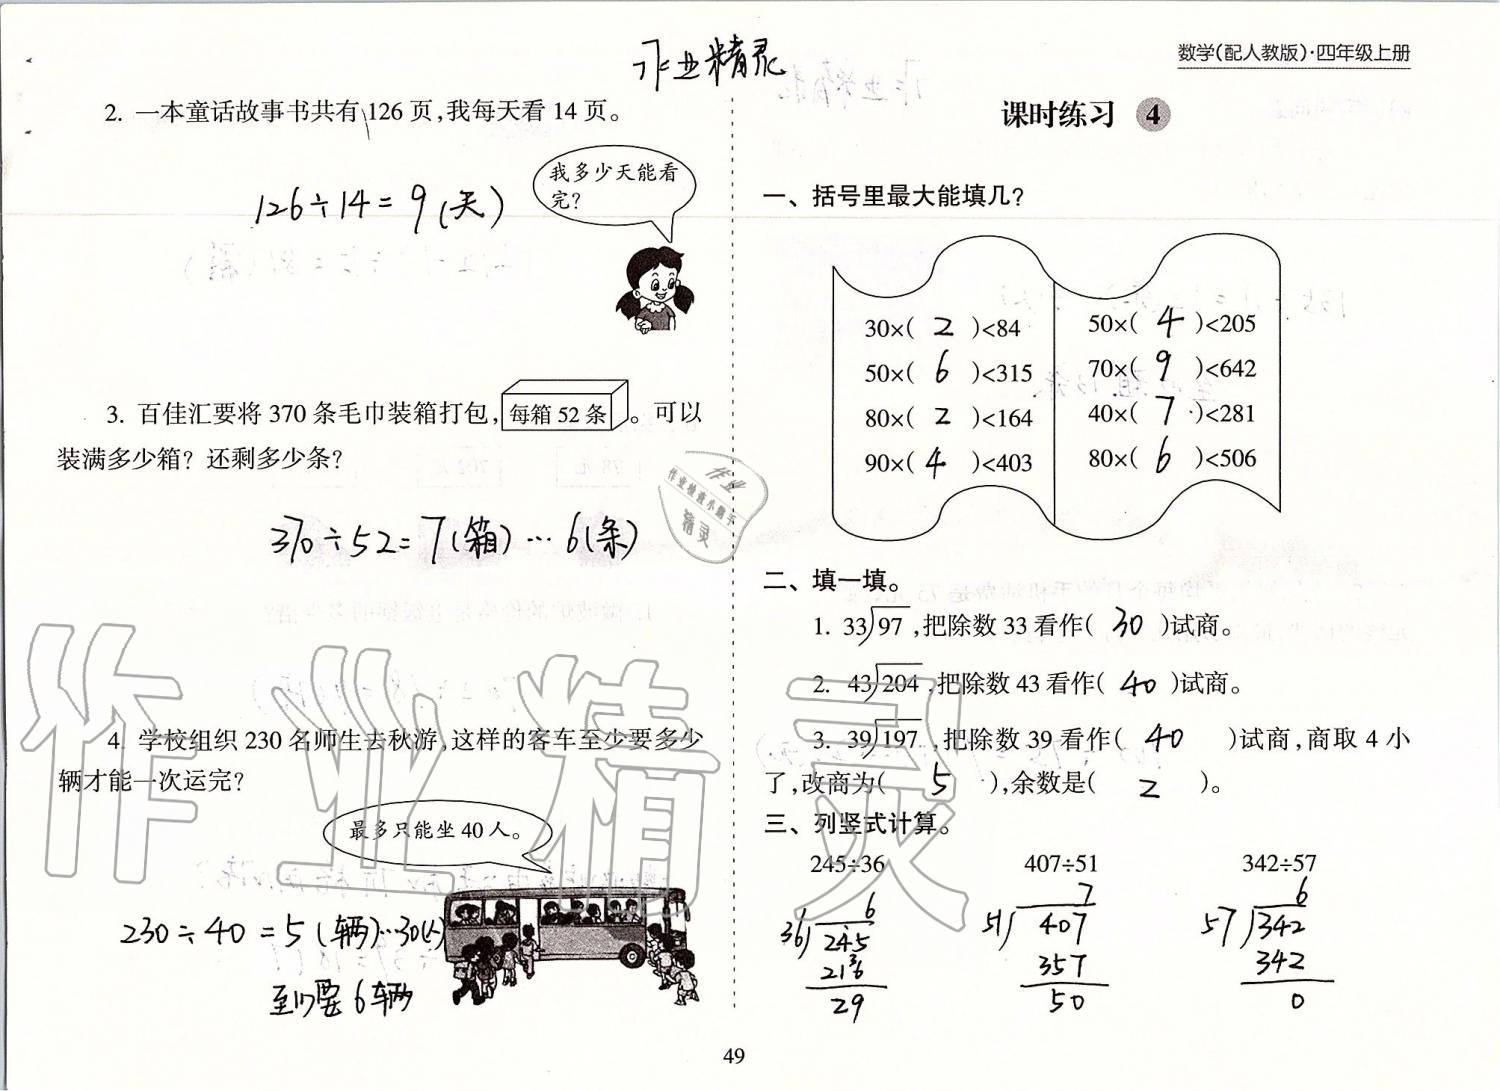 作业精灵
2. 一本童话故事书共有126页,我每天看14页。
我多少天能看
完?
126÷14=9(天)
3. 百佳汇要将370条毛巾装箱打包, 每箱52条 。可以
装满多少箱? 还剩多少条?
370÷52=7(箱)…6(条)
4. 学校组织230名师生去秋游,这样的客车至少要多少
辆才能一次运完?
最多只能坐40人。
230÷40=5(辆)…30(人)
至少要6辆
数学(配人教版)·四年级上册
课时练习 4
一、括号里最大能填几?
30×( 2 )<84
50×( 6 )<315
80×( 2 )<164
90×( 4 )<403
50×( 4 )<205
70×( 9 )<642
40×( 7 )<281
80×( 6 )<506
二、填一填。
1. 33)97,把除数33看作( 30 )试商。
2. 43)204,把除数43看作( 40 )试商。
3. 39)197,把除数39看作( 40 )试商,商取4小
了,改商为( 5 ),余数是( 2 )。
三、列竖式计算。
245÷36 407÷51 342÷57
6 7 6
36)245 51)407 57)342
216 357 342
29 50 0
49
作业
作业检查小助手
精灵
作业精灵